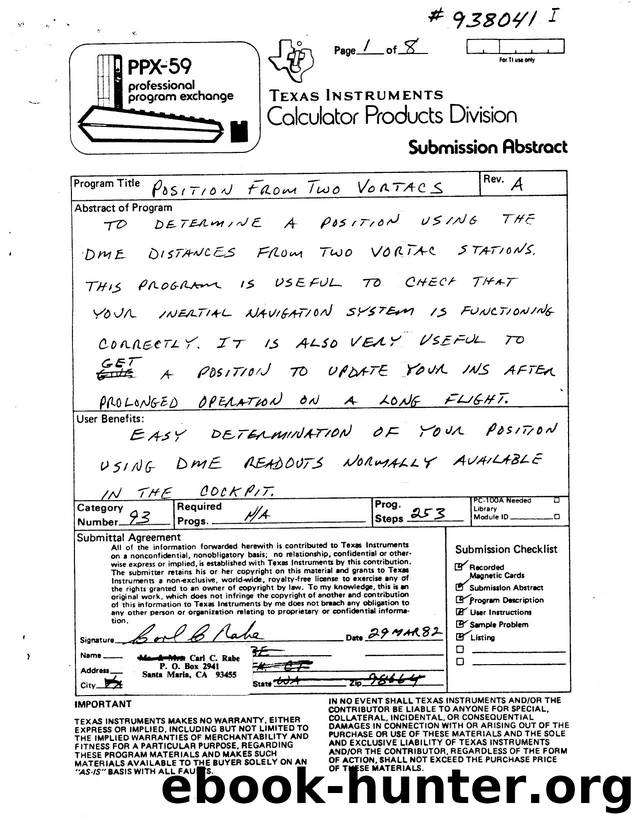 # 938041 I
PPX-59
professional
program exchange
Page 1 of 8
For TI use only
TEXAS INSTRUMENTS
Calculator Products Division
Submission Abstract
Program Title POSITION FROM TWO VORTACS
Rev. A
Abstract of Program
TO DETERMINE A POSITION USING THE
DME DISTANCES FROM TWO VORTAC STATIONS.
THIS PROGRAM IS USEFUL TO CHECK THAT
YOUR INERTIAL NAVIGATION SYSTEM IS FUNCTIONING
CORRECTLY. IT IS ALSO VERY USEFUL TO
GET
A POSITION TO UPDATE YOUR INS AFTER
PROLONGED OPERATION ON A LONG FLIGHT.
User Benefits:
EASY DETERMINATION OF YOUR POSITION
USING DME READOUTS NORMALLY AVAILABLE
IN THE COCKPIT.
Category
Number 93
Required
Progs. N/A
Prog.
Steps 253
PC-100A Needed
Library
Module ID
Submittal Agreement
All of the information forwarded herewith is contributed to Texas Instruments
on a nonconfidential, nonobligatory basis; no relationship, confidential or other-
wise express or implied, is established with Texas Instruments by this contribution.
The submitter retains his or her copyright on this material and grants to Texas
Instruments a non-exclusive, world-wide, royalty-free license to exercise any of
the rights granted to an owner of copyright by law. To my knowledge, this is an
original work, which does not infringe the copyright of another and contribution
of this information to Texas Instruments by me does not breach any obligation to
any other person or organization relating to proprietary or confidential informa-
tion.
Signature Carl C Rabe Date 29 MAR 82
Name Carl C. Rabe
P. O. Box 2941
Address
Santa Maria, CA 93455
City
State WA Zip 98664
Submission Checklist
Recorded
Magnetic Cards
Submission Abstract
Program Description
User Instructions
Sample Problem
Listing
IMPORTANT
TEXAS INSTRUMENTS MAKES NO WARRANTY, EITHER
EXPRESS OR IMPLIED, INCLUDING BUT NOT LIMITED TO
THE IMPLIED WARRANTIES OF MERCHANTABILITY AND
FITNESS FOR A PARTICULAR PURPOSE, REGARDING
THESE PROGRAM MATERIALS AND MAKES SUCH
MATERIALS AVAILABLE TO THE BUYER SOLELY ON AN
"AS-IS" BASIS WITH ALL FAULTS.
IN NO EVENT SHALL TEXAS INSTRUMENTS AND/OR THE
CONTRIBUTOR BE LIABLE TO ANYONE FOR SPECIAL,
COLLATERAL, INCIDENTAL, OR CONSEQUENTIAL
DAMAGES IN CONNECTION WITH OR ARISING OUT OF THE
PURCHASE OR USE OF THESE MATERIALS AND THE SOLE
AND EXCLUSIVE LIABILITY OF TEXAS INSTRUMENTS
AND/OR THE CONTRIBUTOR, REGARDLESS OF THE FORM
OF ACTION, SHALL NOT EXCEED THE PURCHASE PRICE
OF THESE MATERIALS.
ebook-hunter.org